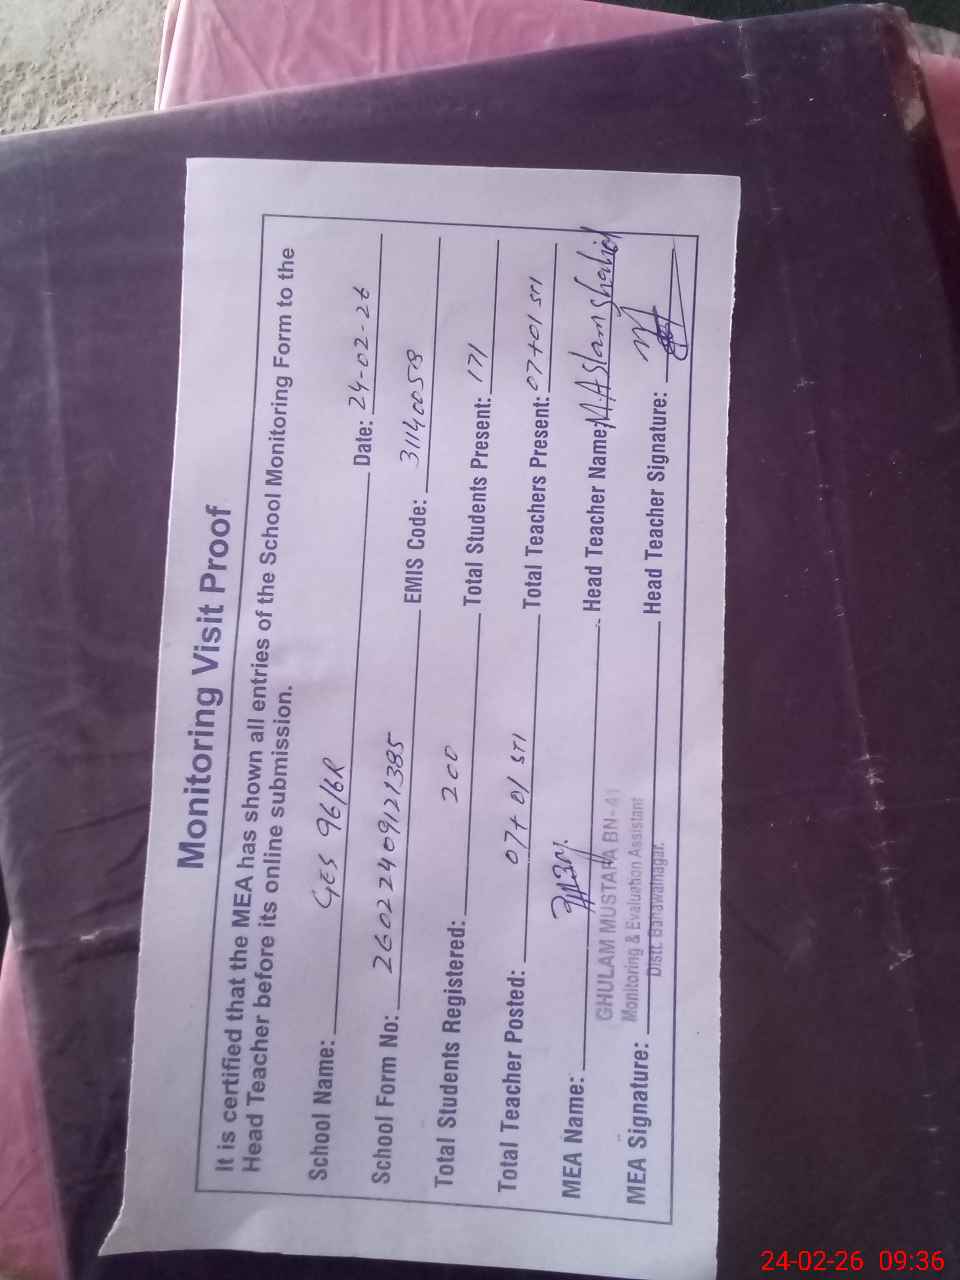 Monitoring Visit Proof
It is certified that the MEA has shown all entries of the School Monitoring Form to the
Head Teacher before its online submission.
School Name: GES 96/6R Date: 24-02-26
School Form No: 26022409121385 EMIS Code: 31140058
Total Students Registered: 200 Total Students Present: 171
Total Teacher Posted: 07+01 STI Total Teachers Present: 07+01 STI
MEA Name: Head Teacher Name: M. Aslam Shahid
GHULAM MUSTAFA BN-41
Monitoring & Evaluation Assistant
MEA Signature: Head Teacher Signature:
Distt. Bahawalnagar.
24-02-26 09:36